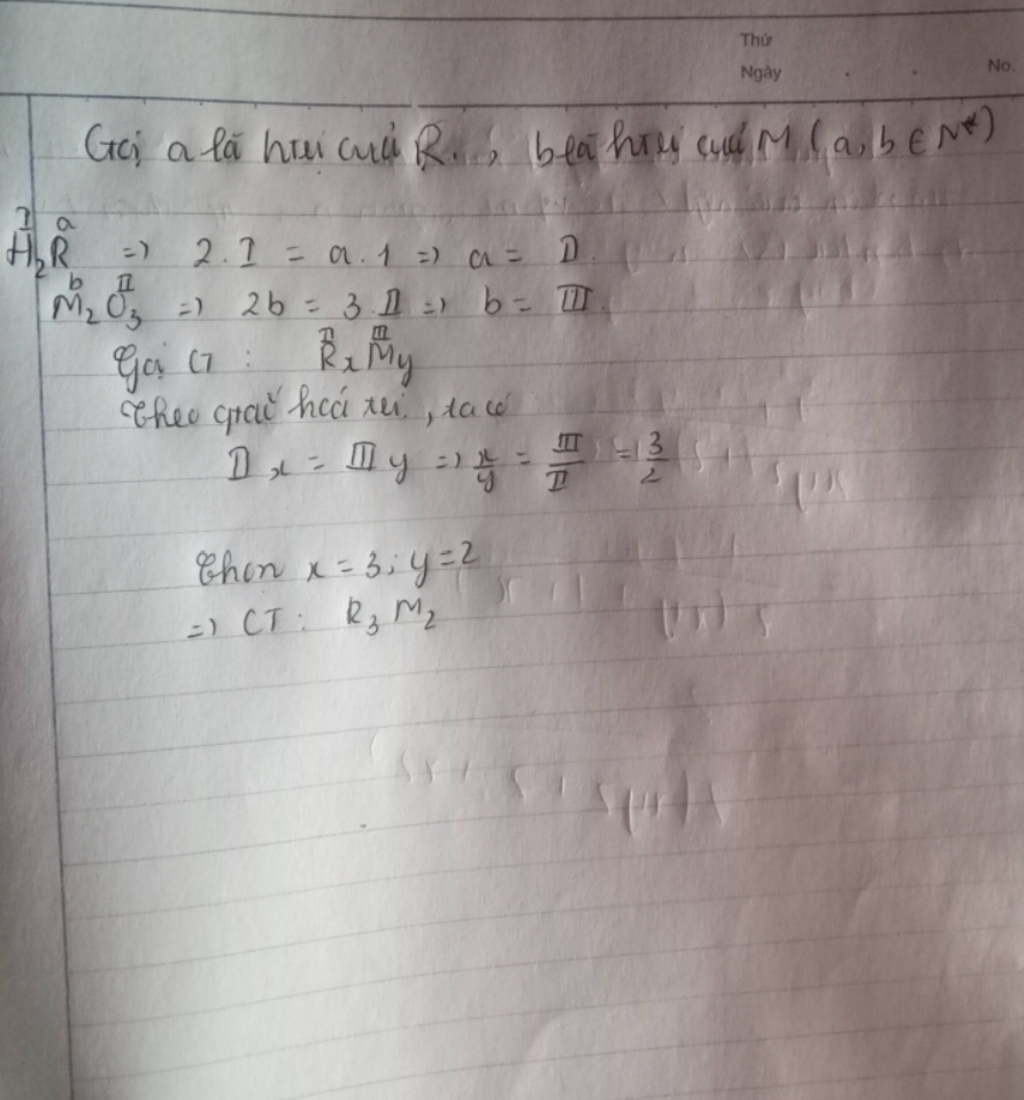 Thứ
Ngày . . No.
Gọi a là htrị củả R, ; b là htrị củả M (a, b ∈ N*)
I a
H₂R => 2.I = a.1 => a = II.
b II
M₂O₃ => 2b = 3.II => b = III.
Gọi CT : RₓMy
II III
Theo qtắc hoá trị, ta có
II x = III y => x/y = III/II = 3/2
Chọn x = 3; y = 2
=> CT : R₃M₂